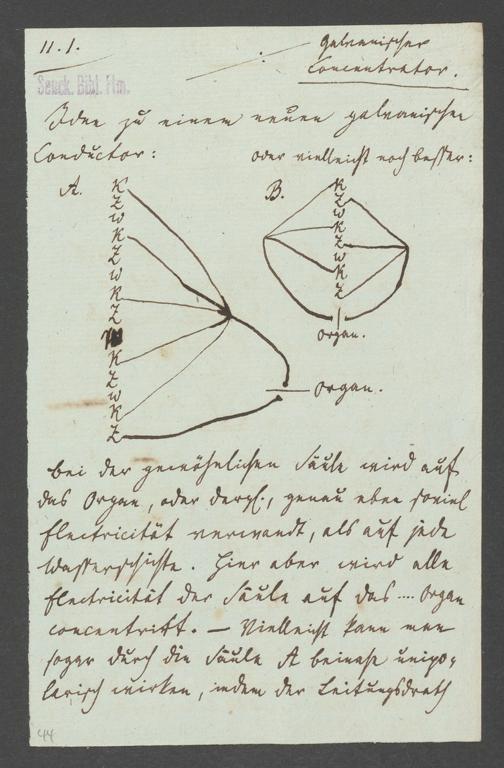 11.1.
Galvanischer
Concentrator.
Senck. Bibl. Ffm.
Idee zu einem neuen galvanischen
Conductor:
oder vielleicht noch besser:
A.
K
Z
W
K
Z
W
K
Z
W
K
Z
W
K
Z
B.
K
Z
W
K
Z
W
K
Z
Organ.
Organ.
Bei der gewöhnlichen Säule wird auf
das Organ, oder dergl., genau eben soviel
Electricität verwandt, als auf jede
Wasserschichte. Hier aber wird alle
Electricität der Säule auf das .... Organ
concentrirt. — Vielleicht kann man
sogar durch die Säule A beinahe unipo-
larisch wirken, indem der Leitungsdrath
44